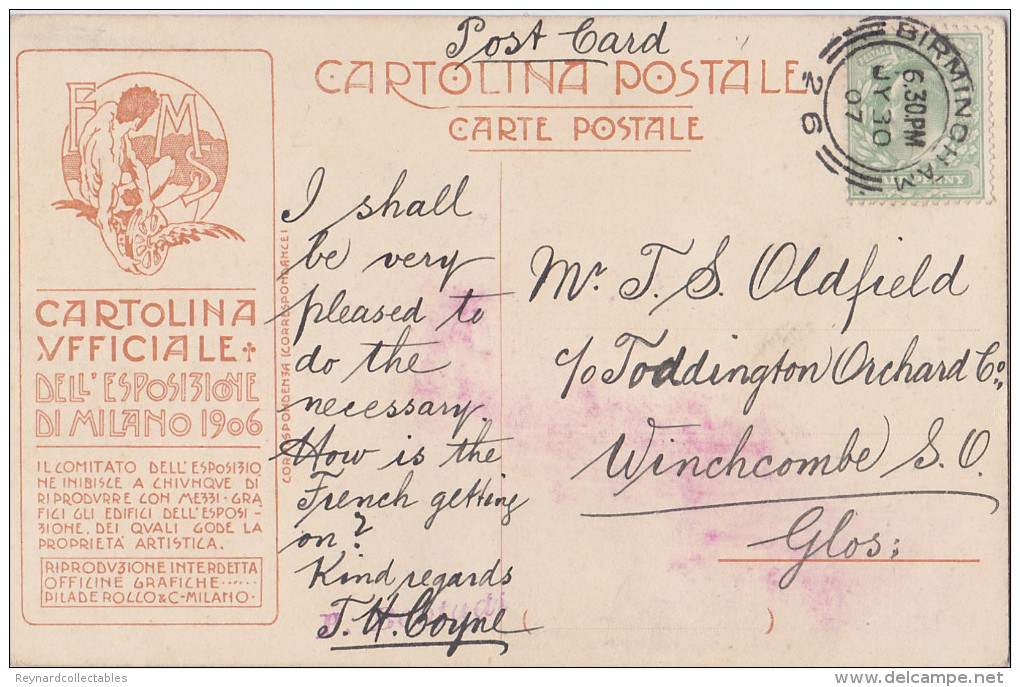 Post Card
CARTOLINA POSTALE
CARTE POSTALE
BIRMINGHAM
6.30.PM
JY 30
07
26
E M S
CARTOLINA
VFFICIALE
DELL'ESPOSIZIONE
DI MILANO 1906
IL COMITATO DELL'ESPOSIZIO
NE INIBISCE A CHIVNQVE DI
RIPRODVRRE CON MEZZI-GRA
FICI GLI EDIFICI DELL'ESPOSI-
ZIONE, DEI QVALI GODE LA
PROPRIETA' ARTISTICA.
RIPRODVZIONE INTERDETTA
OFFICINE GRAFICHE......
PILADE ROCCO & C-MILANO-
CORRESPONDENZA (CORRESPONDANCE)
I shall
be very
pleased to
do the
necessary.
How is the
French getting
on?
Kind regards
T. H. Coyne
Mr. T. S. Oldfield
c/o Toddington Orchard Co.,
Winchcombe S.O.
Glos:
( )
Reynardcollectables
delcampe.net